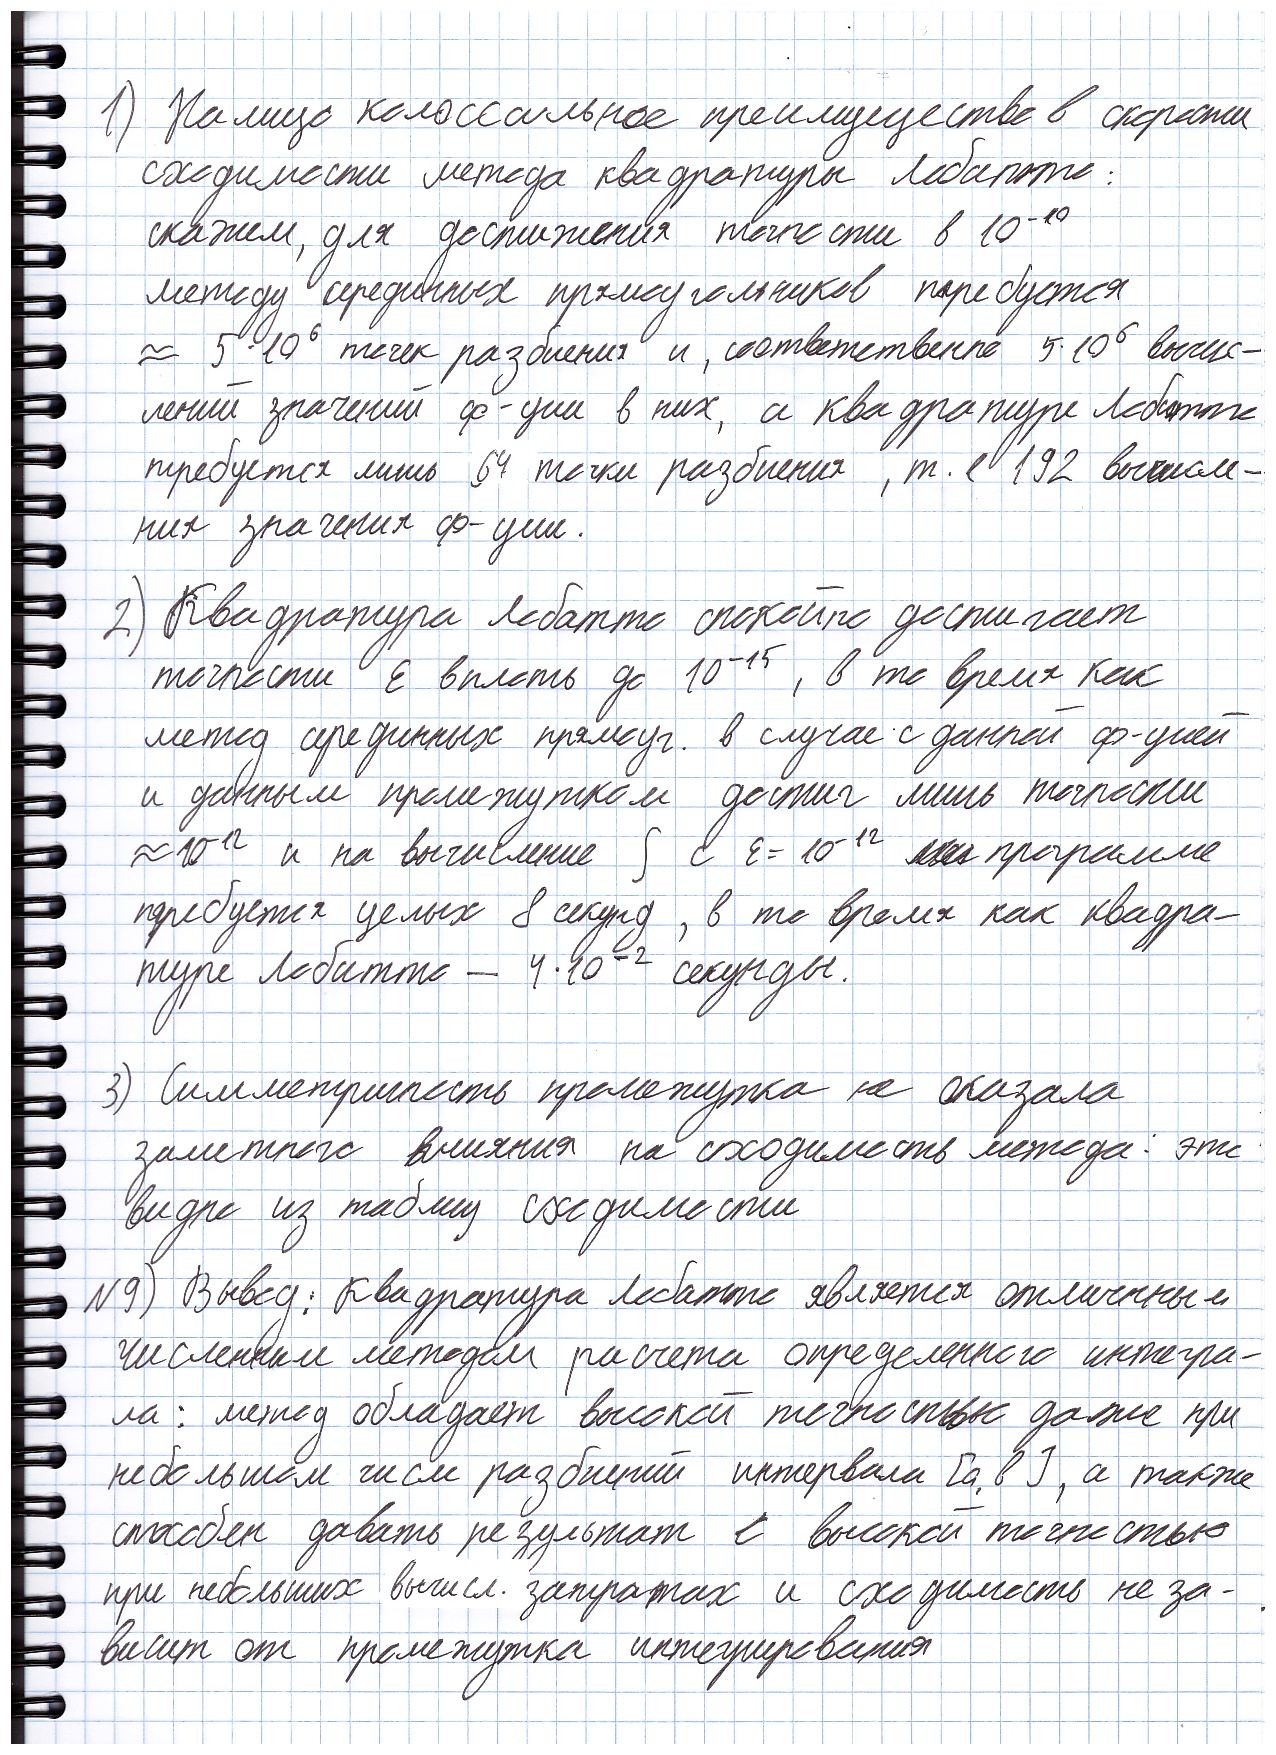 1) Налицо колоссальное преимущество в скорости
сходимости метода квадратуры Лобатто:
скажем, для достижения точности в 10⁻¹⁰
методу серединных прямоугольников требуется
≈ 5·10⁶ точек разбиения и, соответственно 5·10⁶ вычис-
лений значений ф-ции в них, а квадратуре Лобатто
требуется лишь 64 точки разбиения, т. е 192 вычисле-
ния значения ф-ции.
2) Квадратура Лобатто спокойно достигает
точности ε вплоть до 10⁻¹⁵, в то время как
метод серединных прямоуг. в случае с данной ф-цией
и данным промежутком достиг лишь точности
≈10⁻¹² и на вычисление ∫ с ε = 10⁻¹² программе
требуется целых 8 секунд, в то время как квадра-
туре Лобатто — 4·10⁻² секунды.
3) Симметричность промежутка не оказала
заметного влияния на сходимость метода: это
видно из таблиц сходимости
№9) Вывод: Квадратура Лобатто является отличным
численным методом расчета определенного интегра-
ла: метод обладает высокой точностью даже при
небольшом числе разбиений интервала [a, b], а также
способен давать результат с высокой точностью
при небольших вычисл. затратах и сходимость не за-
висит от промежутка интегрирования